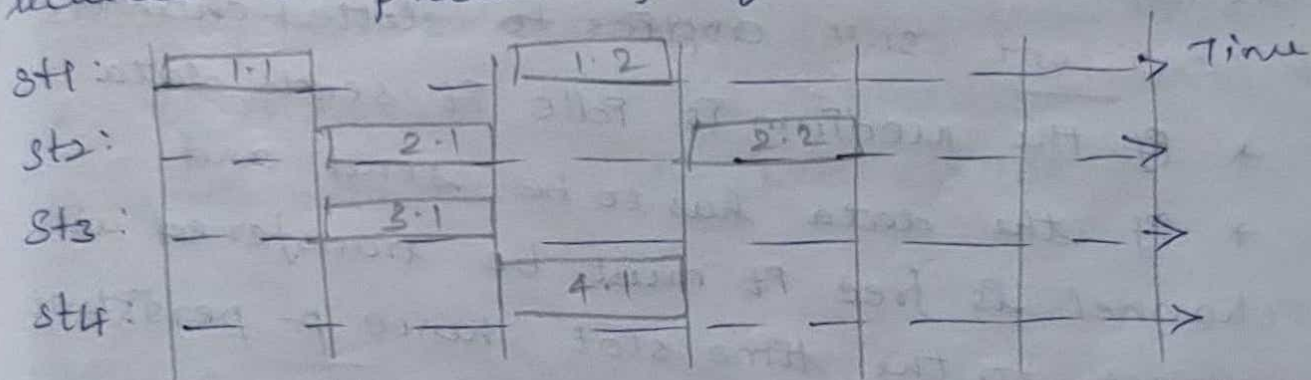 st1: 1.1 1.2 Time
st2: 2.1 2.2
St3: 3.1
st4: 4.1